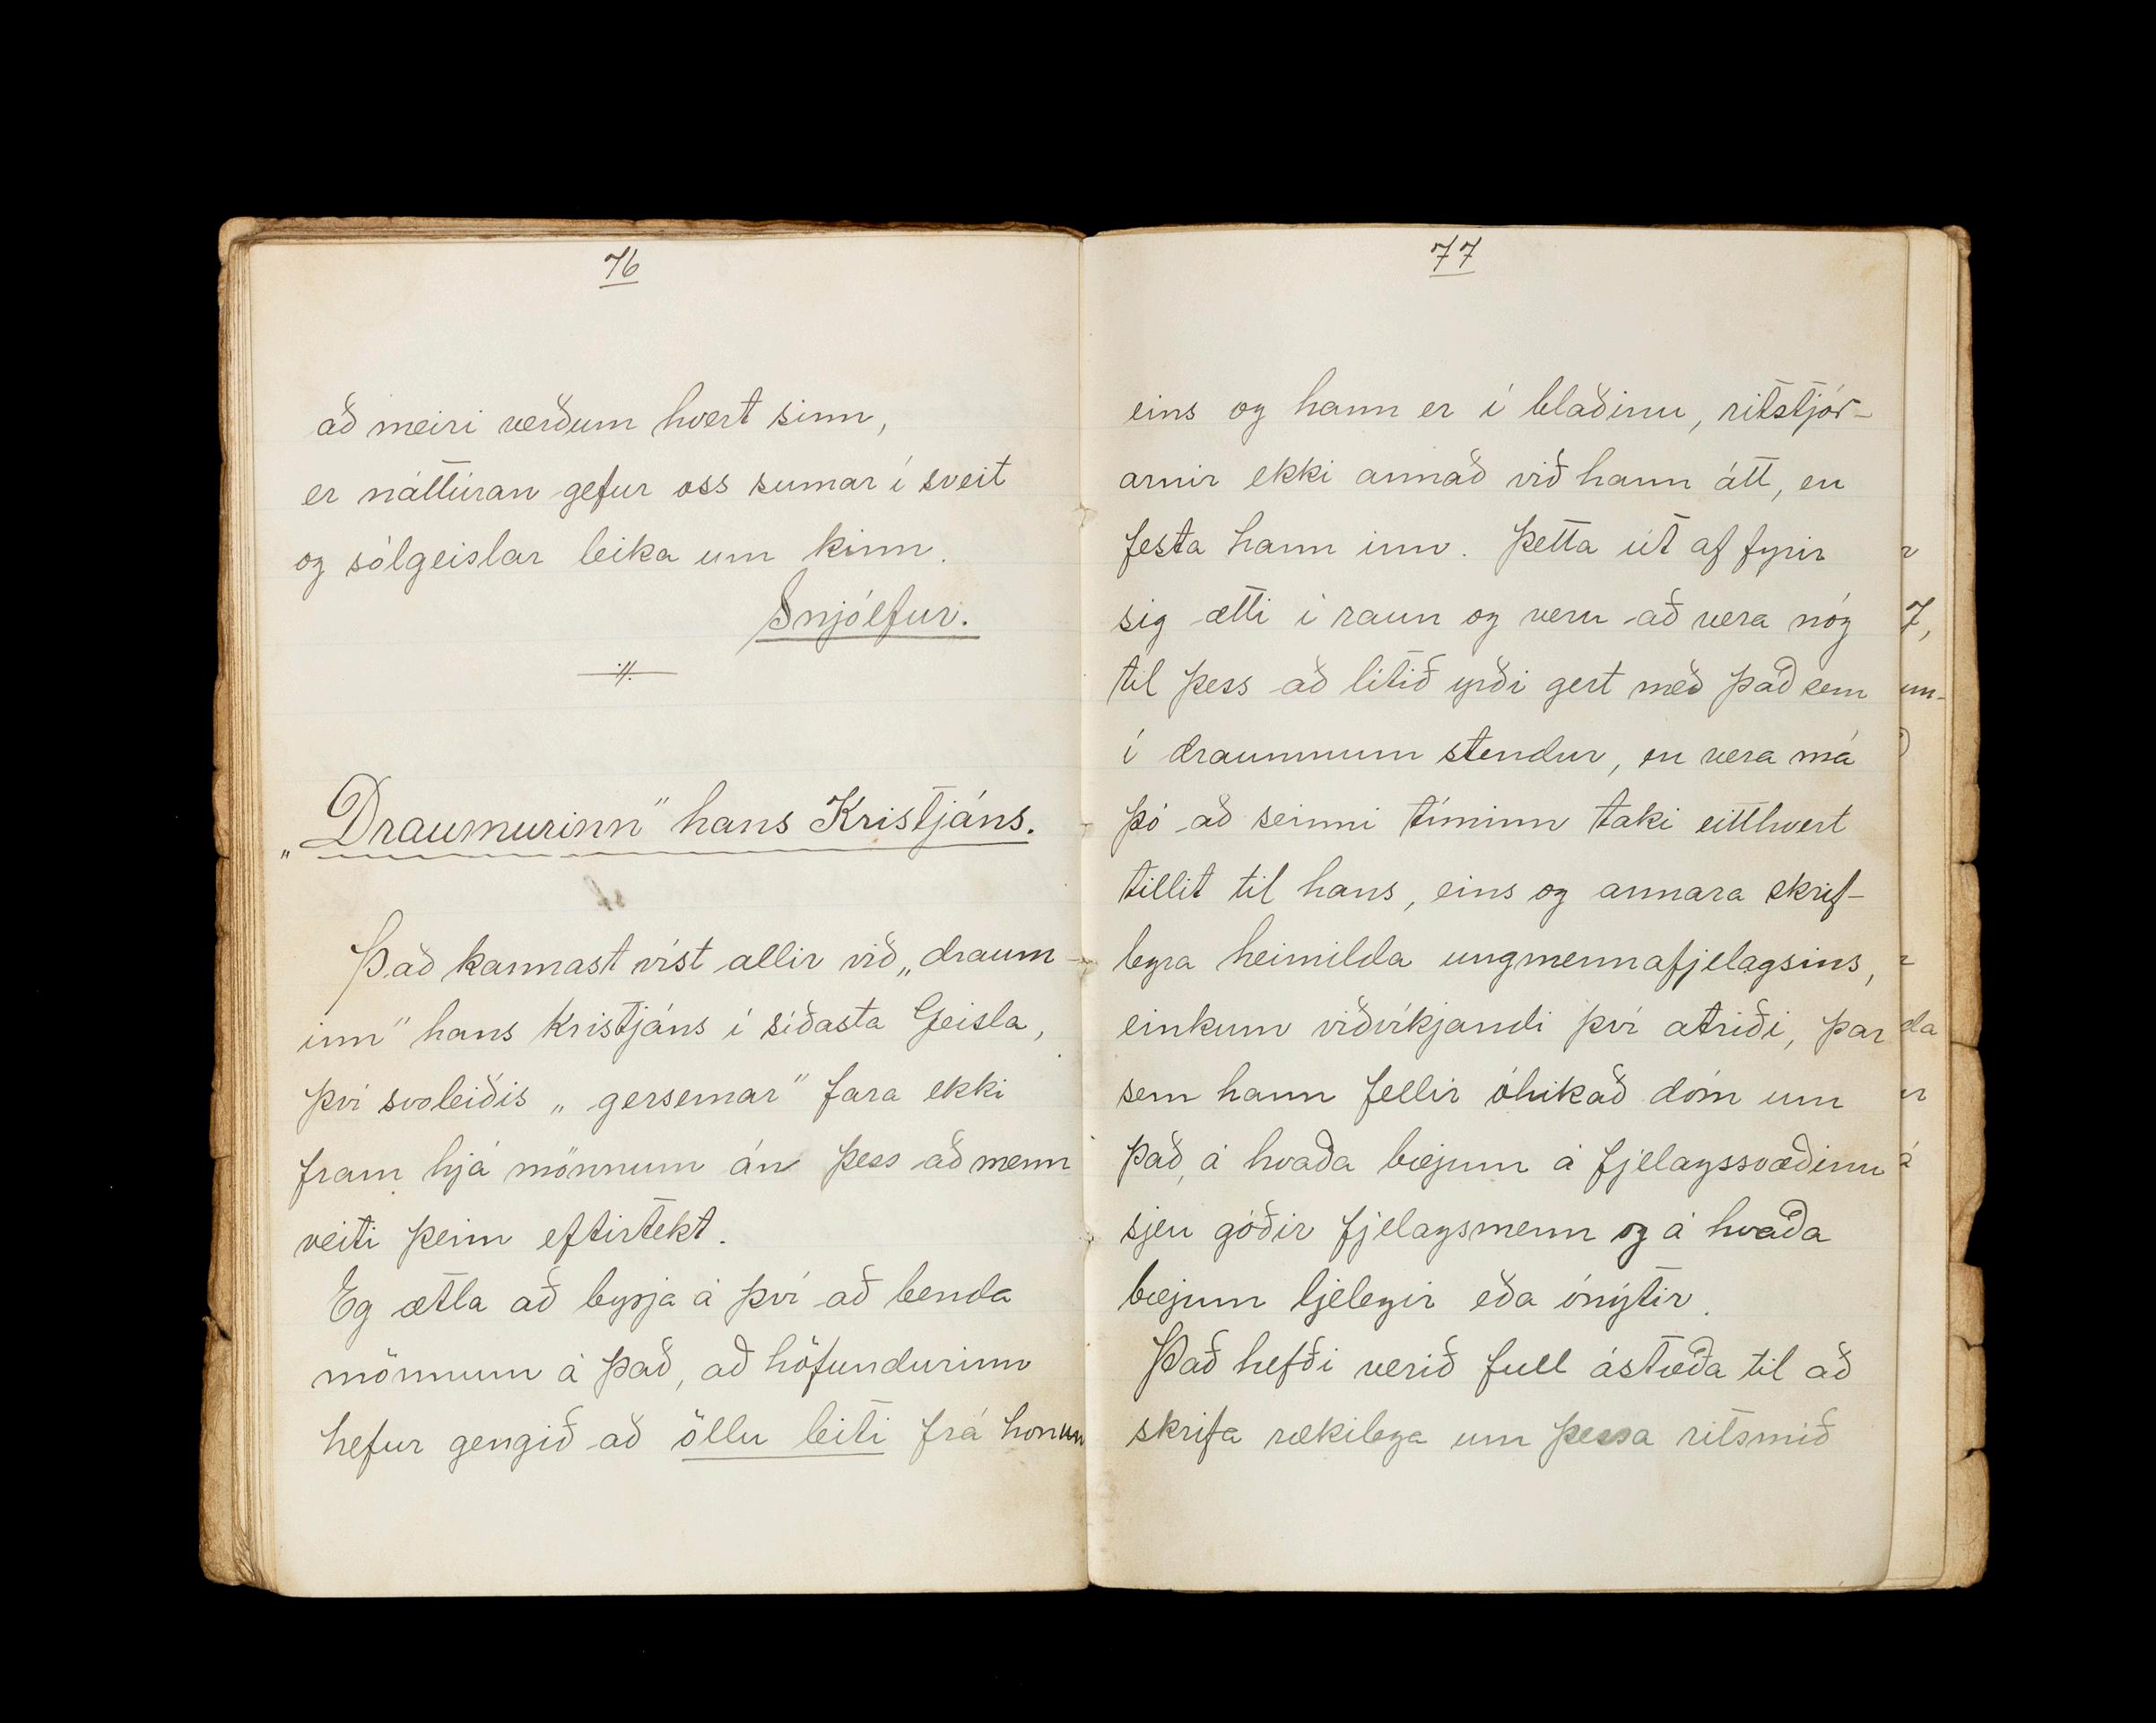 76
að meiri verðum hvert sinn,
er náttúran gefur oss sumar í sveit
og sólgeislar leika um kinn.
Snjólfur.
„Draumurinn" hans Kristjáns.
Það kannast víst allir við „draum-
inn" hans Kristjáns í síðasta Geisla,
því svoleiðis „gersemar" fara ekki
fram hjá mönnum án þess að menn
veiti þeim eftirtekt.
Eg ætla að byrja á því að benda
mönnum á það, að höfundurinn
hefur gengið að öllu leiti frá honum
77
eins og hann er í blaðinu, ritstjór-
arnir ekki annað við hann átt, en
festa hann inn. Þetta út af fyrir
sig ætti í raun og veru að vera nóg
til þess að lítið yrði gert með það sem
í draumnum stendur, en vera má
þó að seinni tíminn taki eitthvert
tillit til hans, eins og annara skrif-
legra heimilda ungmennafjelagsins,
einkum viðvíkjandi því atriði, þar
sem hann fellir óhikað dóm um
það, á hvaða bæjum á fjelagssvæðinu
sjeu góðir fjelagsmenn og á hvaða
bæjum ljelegir eða ónýtir.
Það hefði verið full ástæða til að
skrifa rækilega um þessa ritsmíð